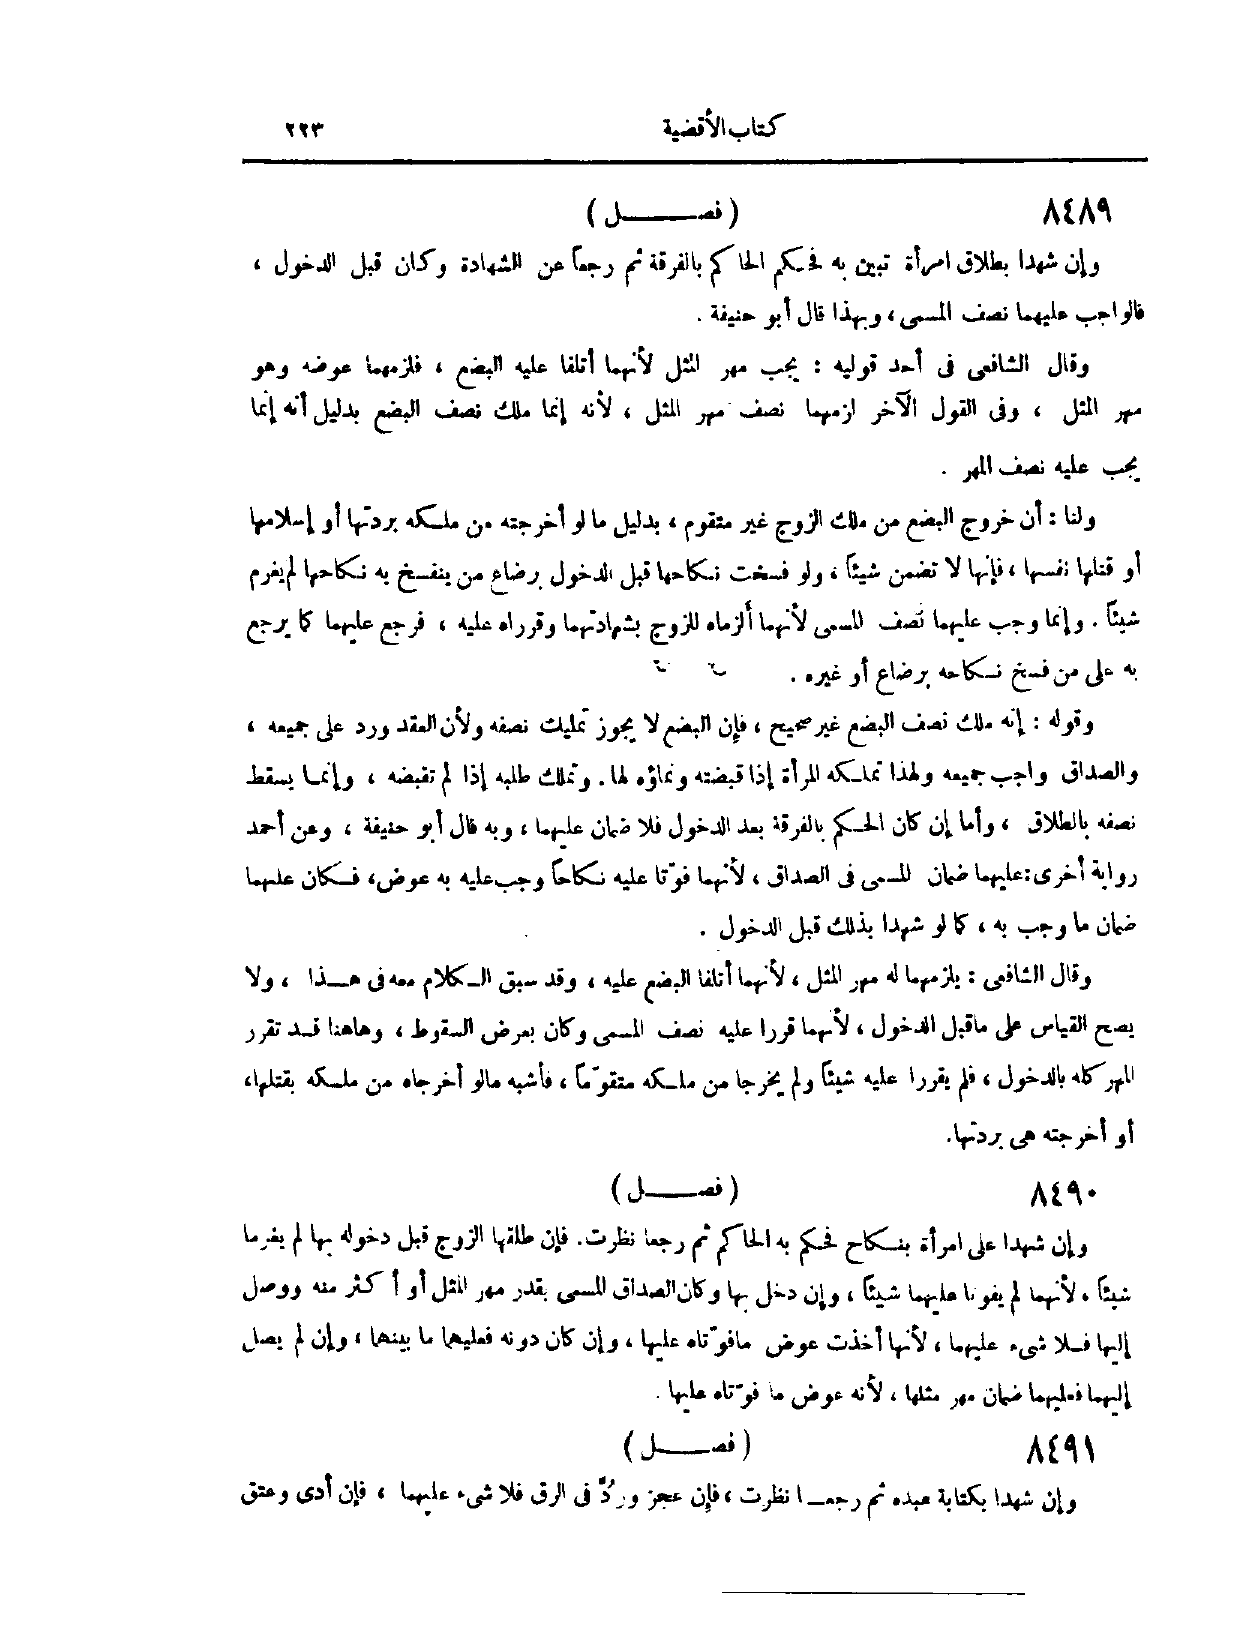 كتاب الأقضية ٢٢٣
٨٤٨٩ ( فصــــل )
وإن شهدا بطلاق امرأة تبين به فحكم الحاكم بالفرقة ثم رجعاً عن الشهادة وكان قبل الدخول ،
فالواجب عليهما نصف المسمى ، وبهذا قال أبو حنيفة .
وقال الشافعى فى أحد قوليه : يجب مهر المثل لأنهما أتلفا عليه البضع ، فلزمهما عوضه وهو
مهر المثل ، وفى القول الآخر لزمهما نصف مهر المثل ، لأنه إنما ملك نصف البضع بدليل أنه إنما
يجب عليه نصف المهر .
ولنا : أن خروج البضع من ملك الزوج غير متقوم ، بدليل ما لو أخرجته من ملكه بردتها أو إسلامها
أو قتلها نفسها ، فإنها لا تضمن شيئاً ، ولو فسخت نكاحها قبل الدخول برضاع من ينفسخ به نكاحها لم يغرم
شيئاً . وإنما وجب عليهما نصف المسمى لأنهما ألزماه للزوج بشهادتهما وقرراه عليه ، فرجع عليهما كما يرجع
به على من فسخ نكاحه برضاع أو غيره .
وقوله : إنه ملك نصف البضع غير صحيح ، فإن البضع لا يجوز تمليك نصفه ولأن العقد ورد على جميعه ،
والصداق واجب جميعه ولهذا تملكه المرأة إذا قبضته ونماؤه لها . وتملك طلبه إذا لم تقبضه ، وإنما يسقط
نصفه بالطلاق ، وأما إن كان الحكم بالفرقة بعد الدخول فلا ضمان عليهما ، وبه قال أبو حنيفة ، وعن أحمد
رواية أخرى : عليهما ضمان المسمى فى الصداق ، لأنهما فوّتا عليه نكاحاً وجب عليه به عوض ، فكان عليهما
ضمان ما وجب به ، كما لو شهدا بذلك قبل الدخول .
وقال الشافعى : يلزمهما له مهر المثل ، لأنهما أتلفا البضع عليه ، وقد سبق الكلام معه فى هذا ، ولا
يصح القياس على ماقبل الدخول ، لأنهما قررا عليه نصف المسمى وكان بعرض السقوط ، وهاهنا قد تقرر
المهر كله بالدخول ، فلم يقررا عليه شيئاً ولم يخرجا من ملكه متقوّماً ، فأشبه مالو أخرجاه من ملكه بقتلها ،
أو أخرجته هى بردتها .
٨٤٩٠ ( فصــــل )
وإن شهدا على امرأة بنكاح فحكم به الحاكم ثم رجعا نظرت . فإن طلقها الزوج قبل دخوله بها لم يغرما
شيئاً ، لأنهما لم يفوتا عليهما شيئاً ، وإن دخل بها وكان الصداق المسمى بقدر مهر المثل أو أكثر منه ووصل
إليها فلا شىء عليهما ، لأنها أخذت عوض مافوّتاه عليها ، وإن كان دونه فعليهما ما بينهما ، وإن لم يصل
إليهما فعليهما ضمان مهر مثلها ، لأنه عوض ما فوّتاه عليها .
٨٤٩١ ( فصــــل )
وإن شهدا بكتابة عبده ثم رجعــا نظرت ، فإن عجز ورُدَّ فى الرق فلا شىء عليهما ، فإن أدى وعتق